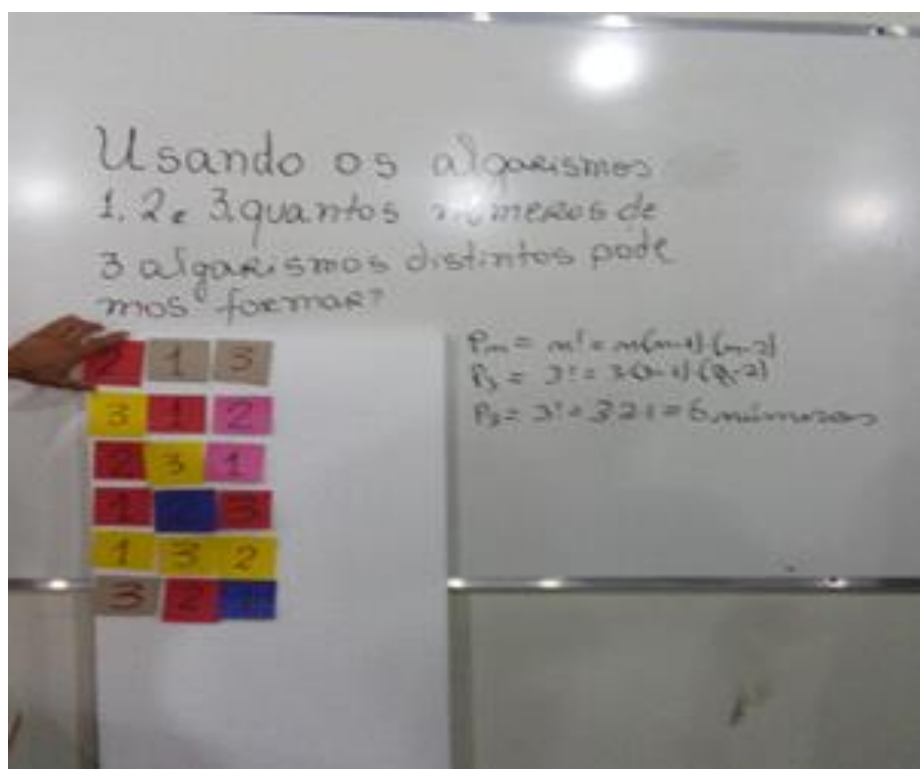 Usando os algarismos
1, 2 e 3 quantos números de
3 algarismos distintos pode
mos formar?
2 1 3
3 1 2
2 3 1
1 2 3
1 3 2
3 2 1
Pn = n! = n(n-1)·(n-2)
P3 = 3! = 3·(3-1)·(3-2)
P3 = 3! = 3·2·1 = 6 números